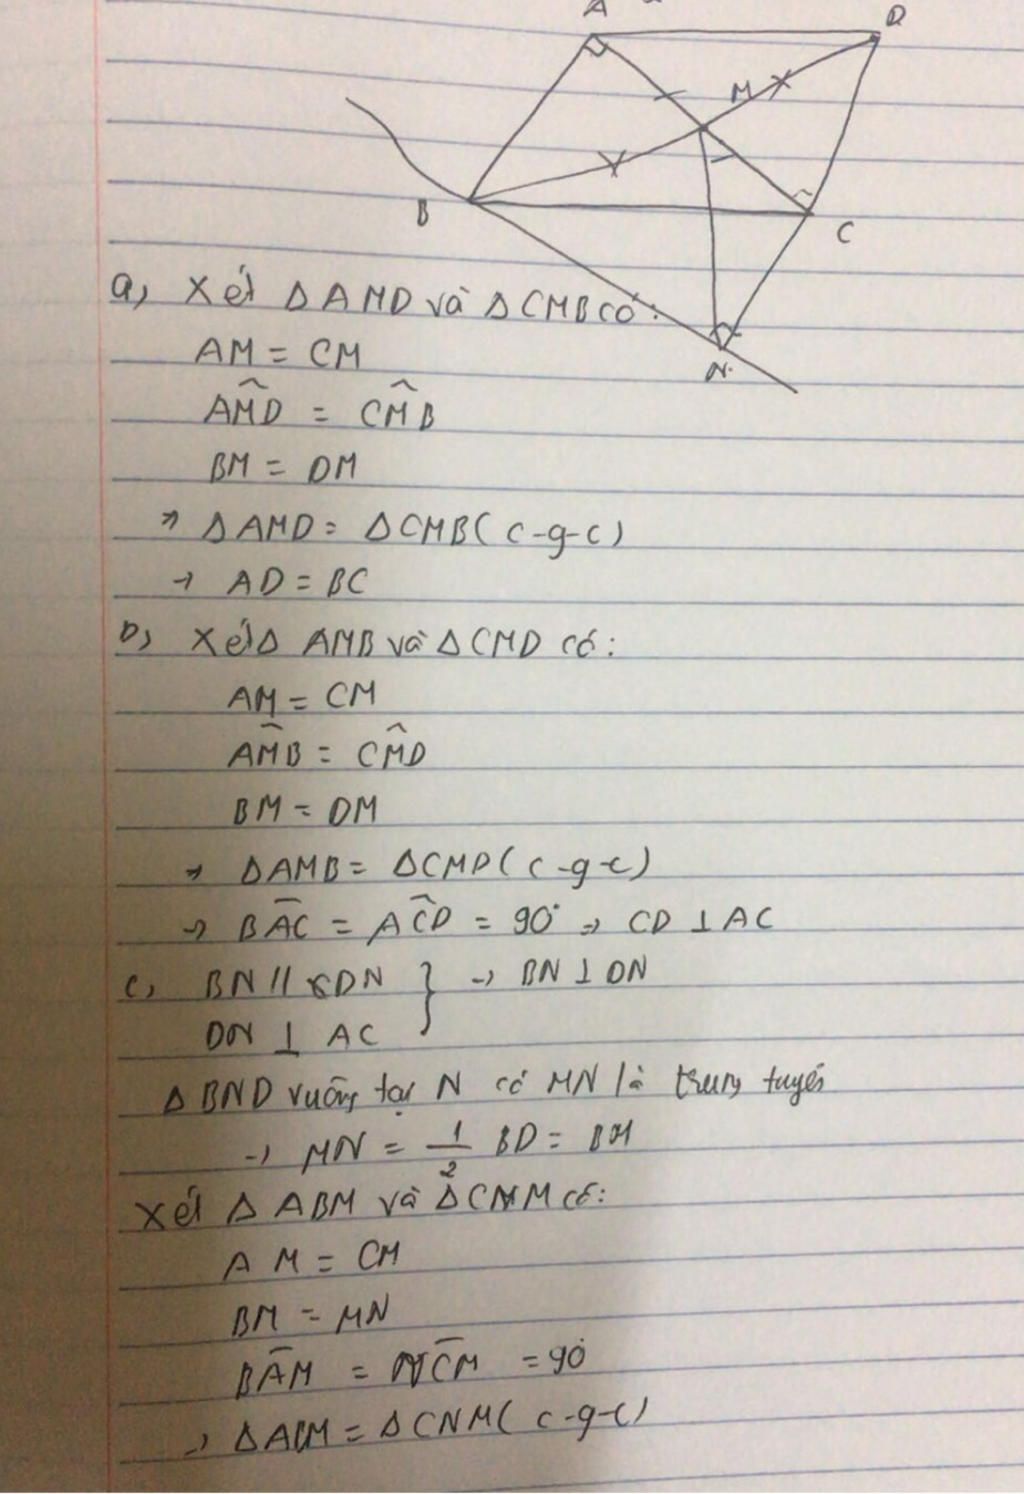 A
D
M
B
C
N
a, Xét ΔAMD và ΔCMB có:
AM = CM
AM̂D = CM̂B
BM = DM
→ ΔAMD = ΔCMB( c-g-c)
→ AD = BC
b, Xét Δ AMB và ΔCMD có:
AM = CM
AM̂B = CM̂D
BM = DM
→ ΔAMB = ΔCMD( c-g-c)
→ BÂC = AĈD = 90° → CD ⊥ AC
c, BN // DN } → BN ⊥ DN
DN ⊥ AC
Δ BND vuông tại N có MN là trung tuyến
→ MN = 1/2 BD = BM
Xét Δ ABM và ΔCNM có:
AM = CM
BM = MN
BÂM = NĈM = 90°
→ ΔABM = ΔCNM( c-g-c)